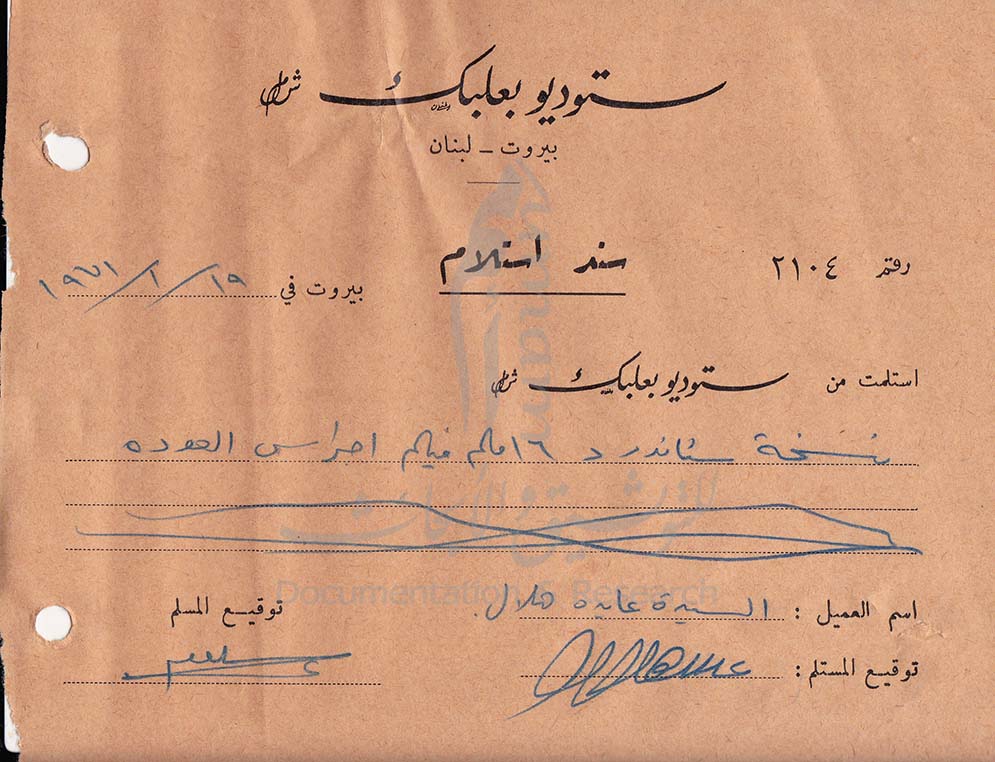 ستوديو بعلبك ش م ل
بيروت - لبنان
رقم ٢١٠٤
سند استلام
بيروت في ١٩ / ١ / ١٩٧١
استلمت من ستوديو بعلبك ش م ل
نسخة ستاندرد ١٦ ملم فيلم اجراس العوده
اسم العميل : السيدة عايده هلال
توقيع المسلم
توقيع المستلم :
Documentation & Research
للتوثيق والأبحاث